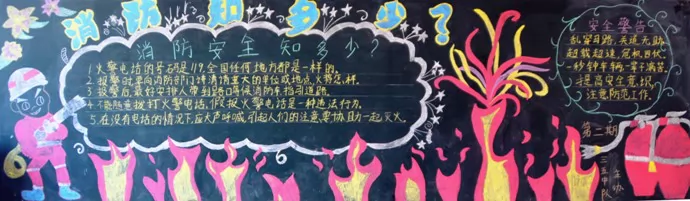 消防知多少?
消防安全知多少?
1.火警电话的号码是119.全国任何地方都是一样的。
2.报警时要向消防部门讲清着火的单位或地点,火势怎样.
3.报警后最好安排人带到路口等候消防车指引道路.
4.不能随意拨打火警电话,假报火警电话是一种违法行为.
5.在没有电话的情况下,应大声呼喊,引起人们的注意,要协助一起灭火.
安全警告
乱穿马路,关道无助
超载超速,危机四伏
一秒钟车祸一辈子痛苦.
提高安全意识,
注意防范工作.
第二期
三五中队
主办